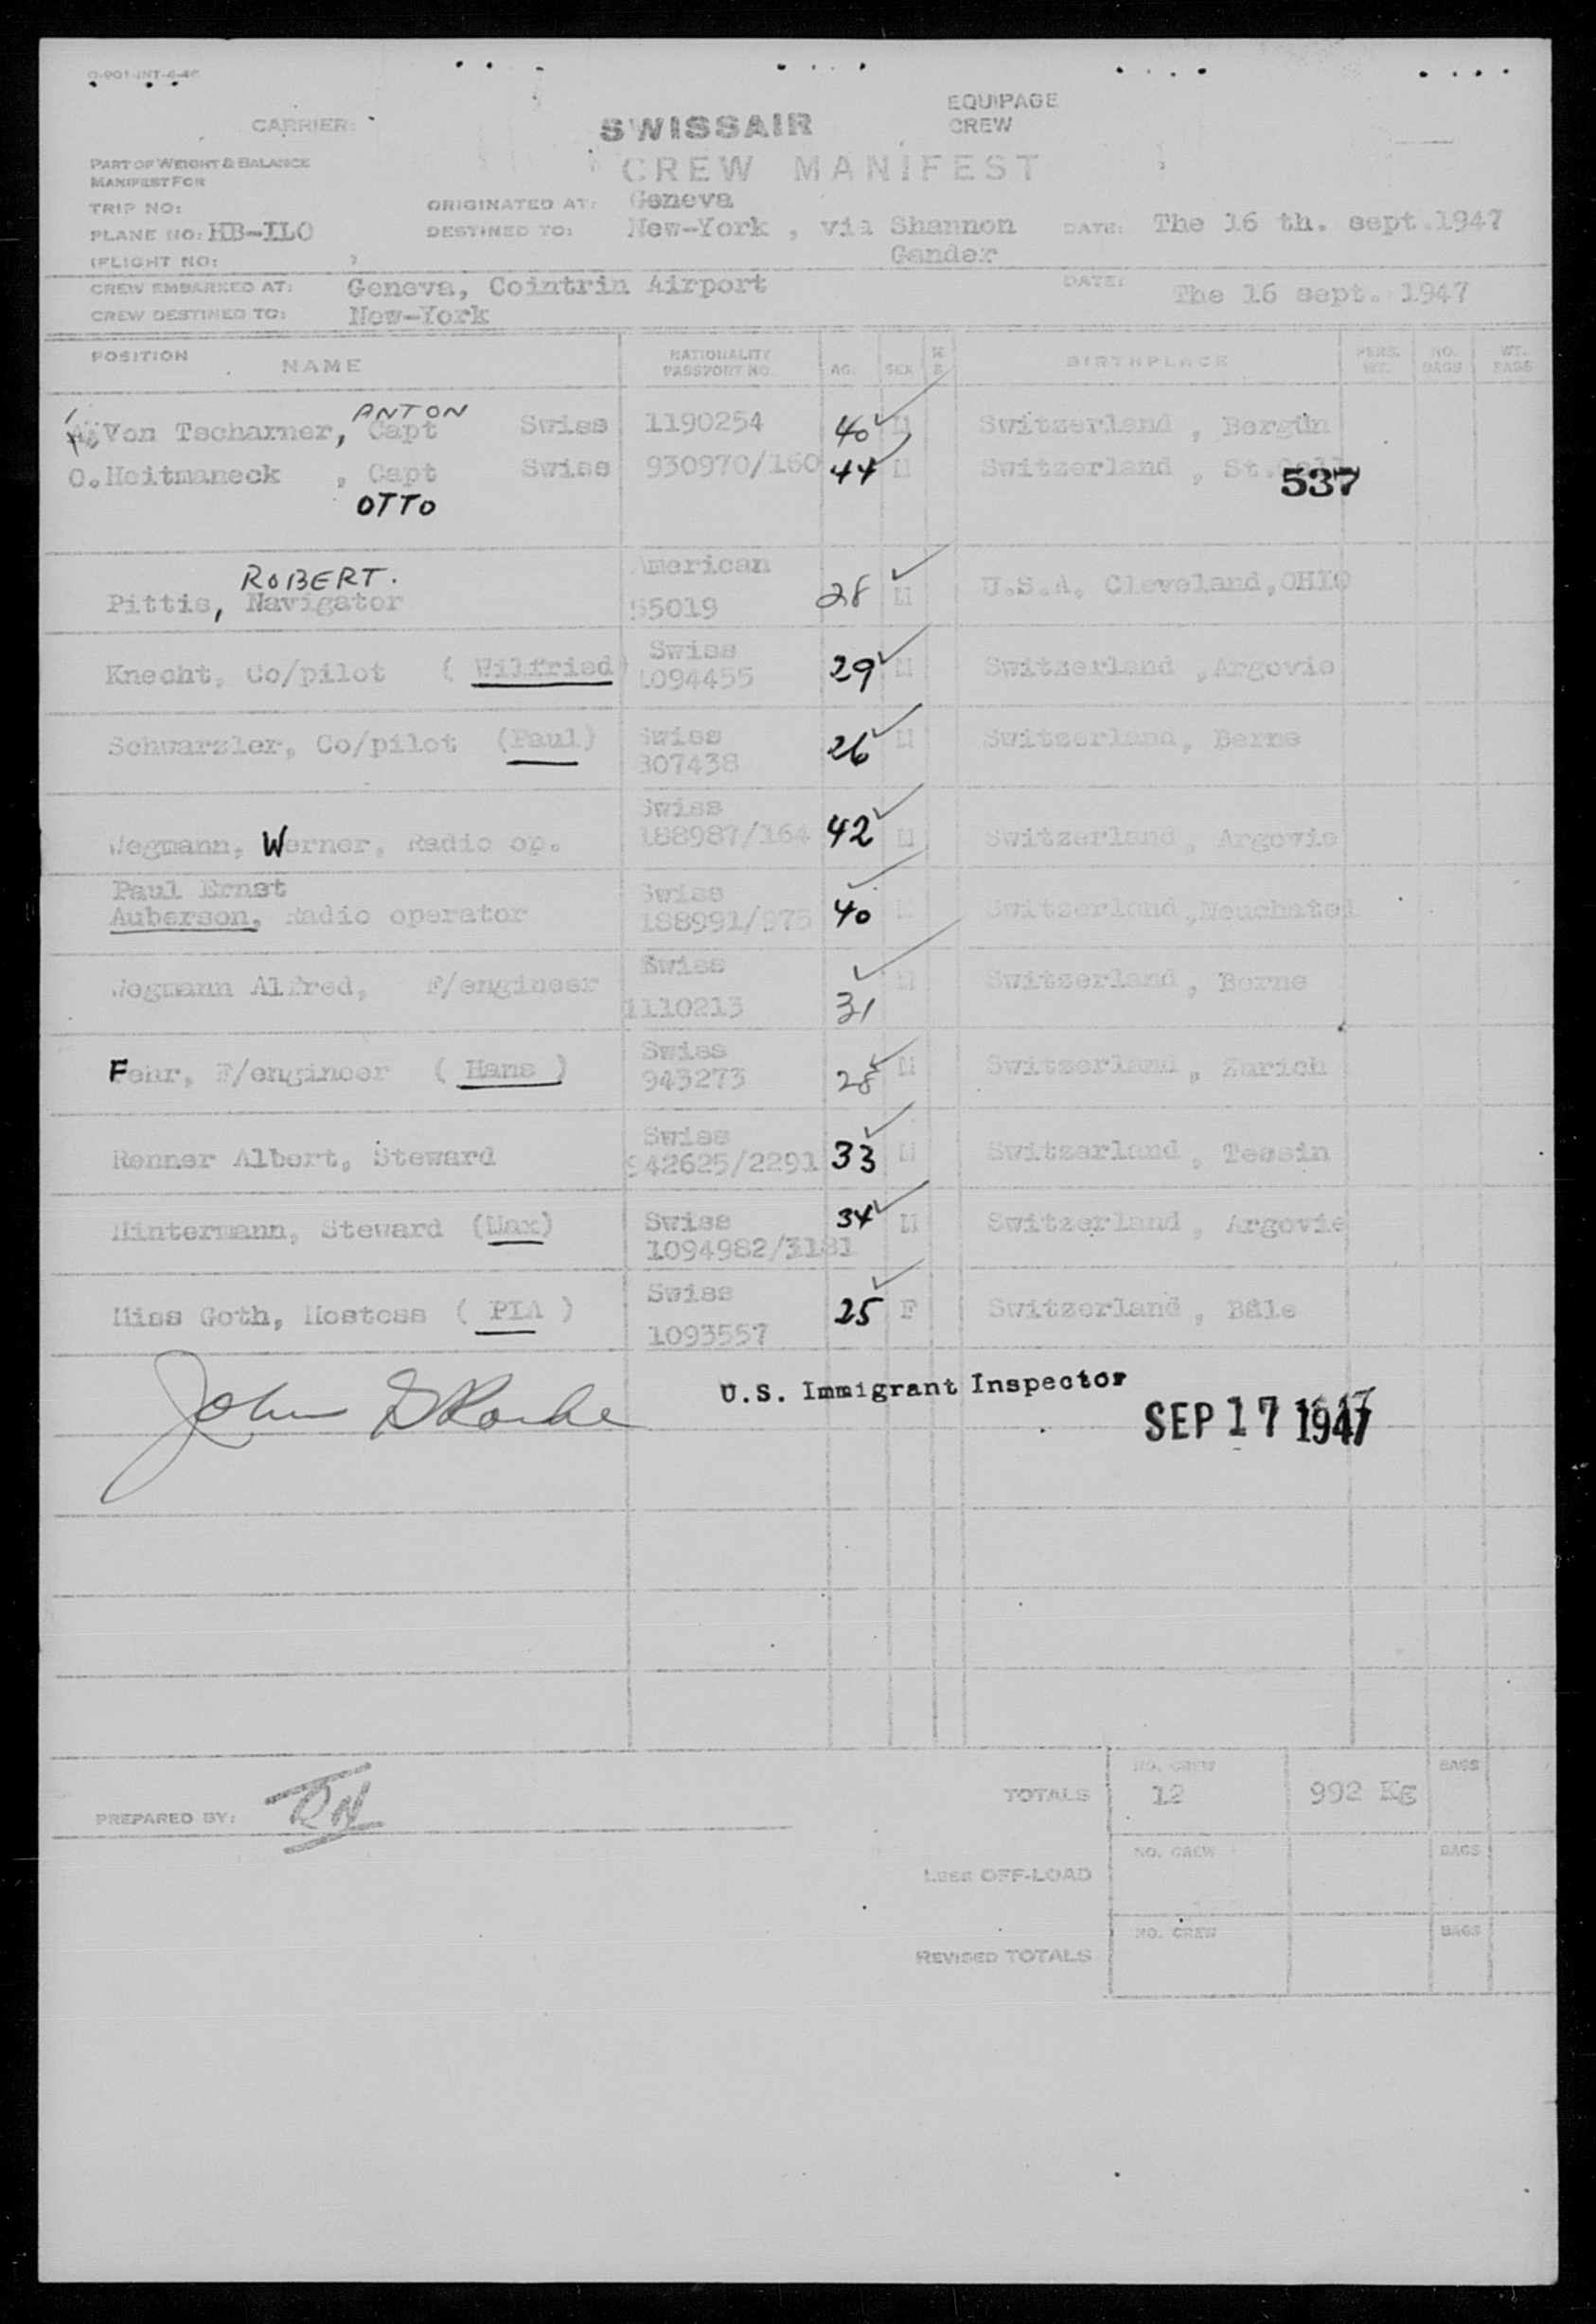 O-901-INT-4-46
EQUIPAGE
CARRIER: SWISSAIR CREW
PART OF WEIGHT & BALANCE
MANIFEST FOR
CREW MANIFEST
TRIP NO: ORIGINATED AT: Geneva
PLANE NO: HB-ILO DESTINED TO: New-York , via Shannon DATE: The 16 th. sept.1947
(FLIGHT NO: Gander
CREW EMBARKED AT: Geneva, Cointrin Airport DATE: The 16 sept. 1947
CREW DESTINED TO: New-York
POSITION NAME NATIONALITY PASSPORT NO. AGE SEX BIRTHPLACE PERS. WT. NO. BAGS WT. BAGS
ANTON
Von Tscharner, Capt Swiss 1190254 40 M Switzerland , Bergün
O. Heitmaneck , Capt Swiss 930970/160 44 M Switzerland , St.
537
OTTO
ROBERT. American
Pittis, Navigator 55019 28 M U.S.A, Cleveland, OHIO
Swiss
Knecht, Co/pilot ( Wilfried) 1094455 29 M Switzerland , Argovie
Schwarzler, Co/pilot (Paul) Swiss 26 M Switzerland, Berne
307438
Swiss
Wegmann, Werner, Radio op. 188987/164 42 M Switzerland, Argovie
Paul Ernst Swiss
Auberson, Radio operator 188991/975 40 M Switzerland, Neuchatel
Swiss
Wegmann Alfred, F/engineer 1110213 31 M Switzerland, Berne
Swiss
Fehr, F/engineer ( Hans ) 943273 28 M Switzerland , Zurich
Swiss
Renner Albert, Steward 942625/2291 33 M Switzerland , Tessin
Hintermann, Steward (Max) Swiss 34 M Switzerland , Argovie
1094982/3181
Swiss
Miss Goth, Hostess ( PIA ) 1093557 25 F Switzerland , Bâle
U.S. Immigrant Inspector
SEP 17 1947
PREPARED BY: TOTALS NO. CREW 12 992 Kg BAGS
LESS OFF-LOAD NO. CREW BAGS
REVISED TOTALS NO. CREW BAGS